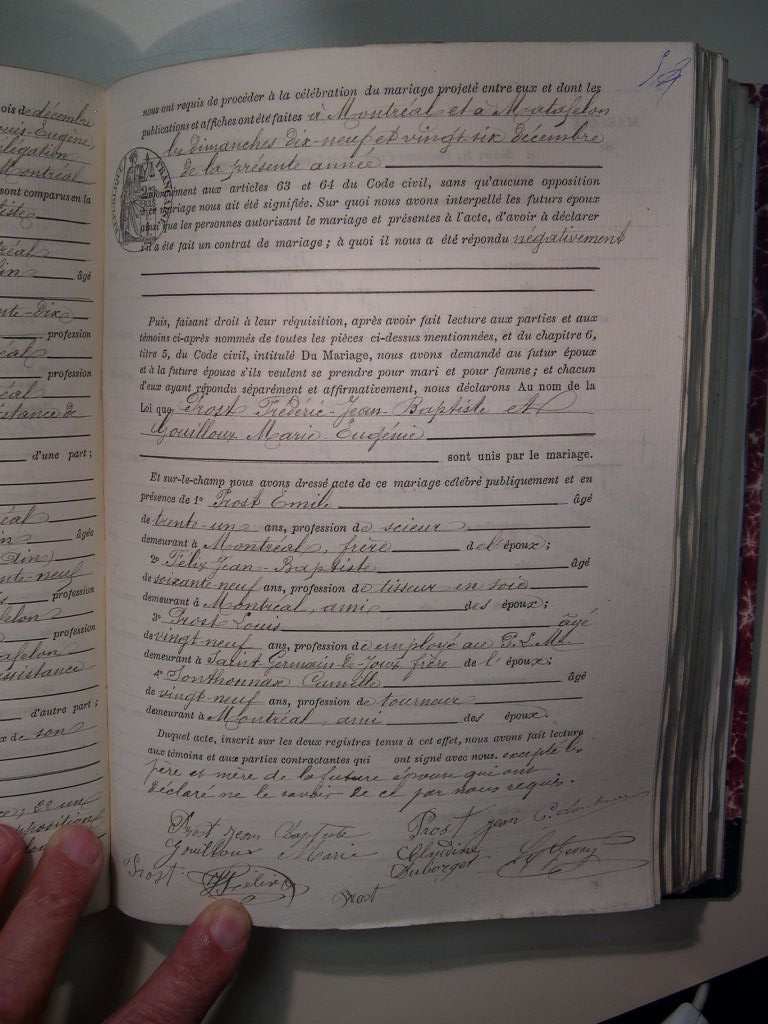 ois de décembre
uis-Eugène,
élégation
Montréal
sont comparus en la
tiste
éal
in âgé
nte-dix
profession
éal
profession
éal
éal
sistance de
d'une part;
éal
âgée
Ain
nte-neuf
profession
felon
profession
afelon
ssistance
d'autre part;
x de son
22 un
pposition
53
nous ont requis de procéder à la célébration du mariage projeté entre eux et dont les
publications et affiches ont été faites à Montréal et à Matafelon
les dimanches dix-neuf et vingt six décembre
de la présente année
RÉPUBLIQUE FRANÇAISE
conformément aux articles 63 et 64 du Code civil, sans qu'aucune opposition
à ce mariage nous ait été signifiée. Sur quoi nous avons interpellé les futurs époux
ainsi que les personnes autorisant le mariage et présentes à l'acte, d'avoir à déclarer
s'il a été fait un contrat de mariage; à quoi il nous a été répondu négativement
Puis, faisant droit à leur réquisition, après avoir fait lecture aux parties et aux
témoins ci-après nommés de toutes les pièces ci-dessus mentionnées, et du chapitre 6,
titre 5, du Code civil, intitulé Du Mariage, nous avons demandé au futur époux
et à la future épouse s'ils veulent se prendre pour mari et pour femme; et chacun
d'eux ayant répondu séparément et affirmativement, nous déclarons Au nom de la
Loi que Prost Frédéric-Jean-Baptiste et
Gouilloux Marie Eugénie
sont unis par le mariage.
Et sur-le-champ nous avons dressé acte de ce mariage célébré publiquement et en
présence de 1º Prost Emile âgé
de trente-un ans, profession de scieur
demeurant à Montréal, frère de l'époux;
2º Félix Jean-Baptiste âgé
de soixante-neuf ans, profession de tisseur en soie
demeurant à Montréal, ami des époux;
3º Prost Louis âgé
de vingt-neuf ans, profession de employé au P. L. M.
demeurant à Saint Germain de Joux frère de l'époux;
4º Sonthonnax Camille âgé
de vingt-neuf ans, profession de tourneur
demeurant à Montréal, ami des époux.
Duquel acte, inscrit sur les deux registres tenus à cet effet, nous avons fait lecture
aux témoins et aux parties contractantes qui ont signé avec nous. excepté les
père et mère de la future épouse qui ont
déclaré ne le savoir de ce par nous requis.
Prost Jean Baptiste Prost Jean
Gouilloux Marie Claudine
Auberger
Prost Félix
Prost